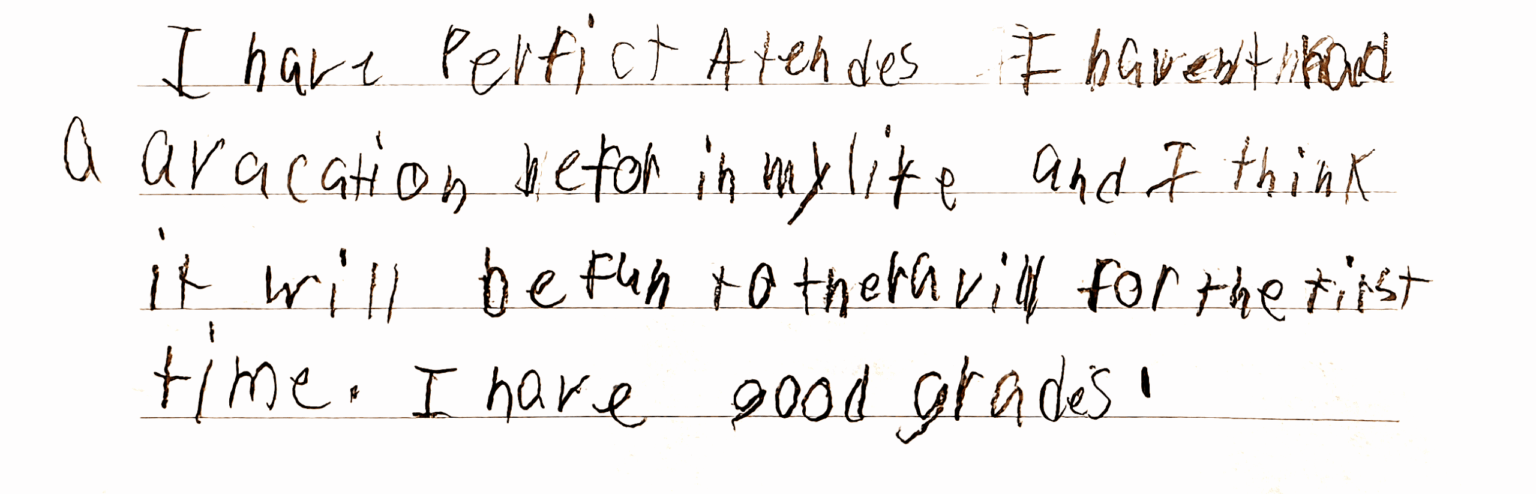 I have Perfict Atendes I havent had
a a vacation befor in my life and I think
it will be fun to the for the first
time. I have good grades.